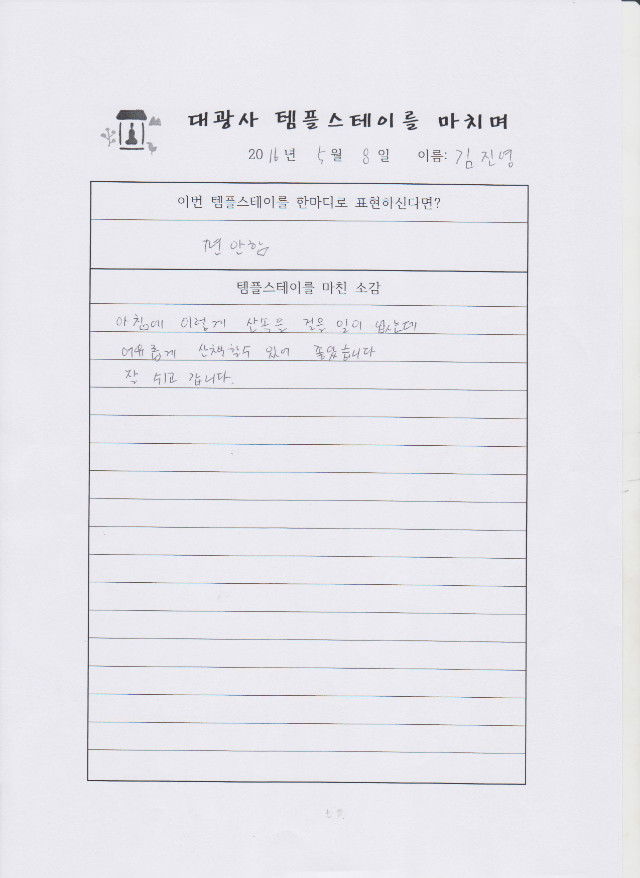 대광사 템플스테이를 마치며
2016년 5월 8일 이름: 김진영
이번 템플스테이를 한마디로 표현하신다면?
편안함
템플스테이를 마친 소감
아침에 이렇게 산속을 걸을 일이 없는데
여유롭게 산책할수 있어 좋았습니다
잘 쉬고 갑니다.